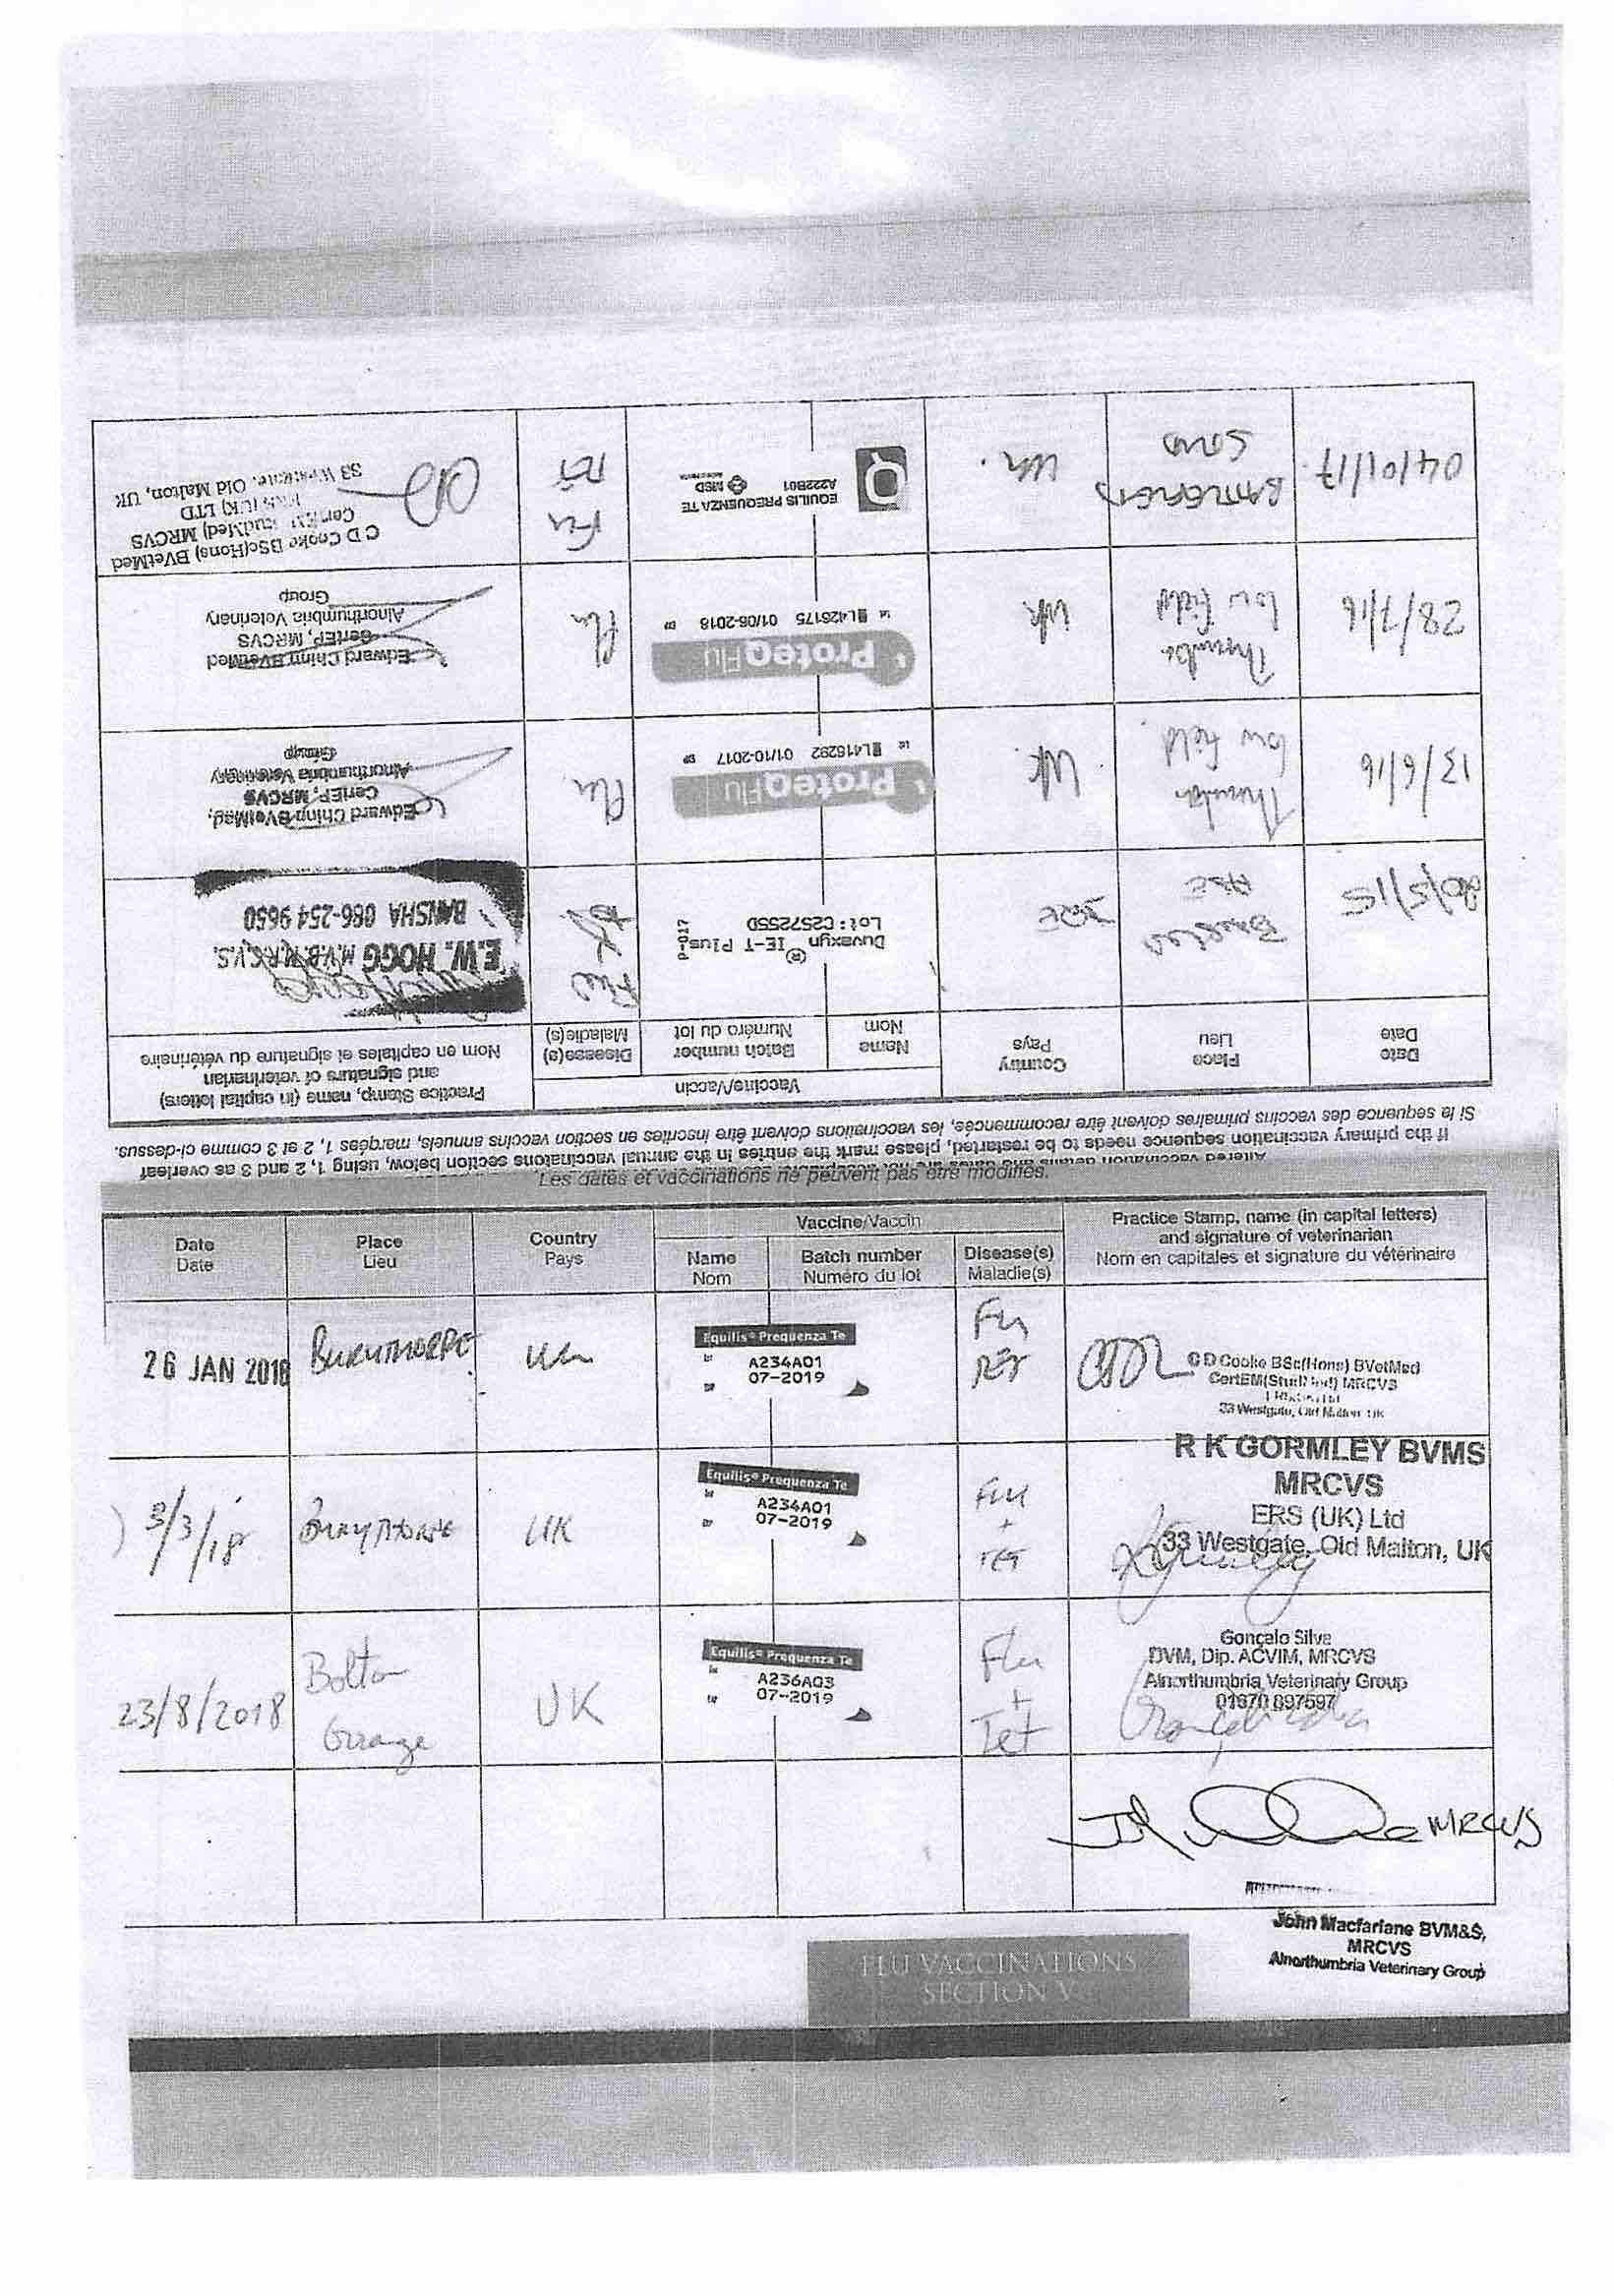 Altered vaccination details and dates are not acceptable
If the primary vaccination sequence needs to be restarted, please mark the entries in the annual vaccinations section below, using 1, 2 and 3 as overleaf
Si la sequence des vaccins primaires doivent être recommencés, les vaccinations doivent être inscrites en section vaccins annuels, marqées 1, 2 et 3 comme ci-dessus.
Date
Date
Place
Lieu
Country
Pays
Vaccine/Vaccin
Name
Nom
Batch number
Numéro du lot
Disease(s)
Maladie(s)
Practice Stamp, name (in capital letters)
and signature of veterinarian
Nom en capitales et signature du vétérinaire
26/5/15
Duvaxyn® IE-T Plus
Lot: C257255D
P-0217
E.W. HOGG M.V.B. M.R.C.V.S.
BANSHA 086-254 9650
13/6/16
low field
UK
ProteqFlu
L416292 01/10-2017
Flu
Edward Ching BVetMed,
CertEP, MRCVS
Alnorthumbria Veterinary
Group
28/7/16
low field
UK
ProteqFlu
L426175 01/06-2018
Flu
Edward Ching BVetMed
CertEP, MRCVS
Alnorthumbria Veterinary
Group
04/01/17.
UK.
EQUILIS PREQUENZA TE
A222B01 MSD
Flu
TET
C D Cooke BSc(Hons) BVetMed
CertEM(StudMed) MRCVS
ERS (UK) LTD
33 Westgate, Old Malton, UK
Les dates et vaccinations ne peuvent pas être modifiés.
Date
Date
Place
Lieu
Country
Pays
Vaccine/Vaccin
Name
Nom
Batch number
Numéro du lot
Disease(s)
Maladie(s)
Practice Stamp, name (in capital letters)
and signature of veterinarian
Nom en capitales et signature du vétérinaire
26 JAN 2018
BURYTHORPE
UK
Equilis® Prequenza Te
A234A01
07-2019
Flu
TET
C D Cooke BSc(Hons) BVetMed
CertEM(StudMed) MRCVS
33 Westgate, Old Malton UK
3/3/18
BURYTHORPE
UK
Equilis® Prequenza Te
A234A01
07-2019
Flu
+
TET
R K GORMLEY BVMS
MRCVS
ERS (UK) Ltd
33 Westgate, Old Malton, UK
23/8/2018
Bolton
Grange
UK
Equilis® Prequenza Te
A236A03
07-2019
Flu
+
Tet
Gonçalo Silva
DVM, Dip. ACVIM, MRCVS
Alnorthumbria Veterinary Group
01670 897597
MRCVS
John Macfarlane BVM&S,
MRCVS
Alnorthumbria Veterinary Group
FLU VACCINATIONS
SECTION V